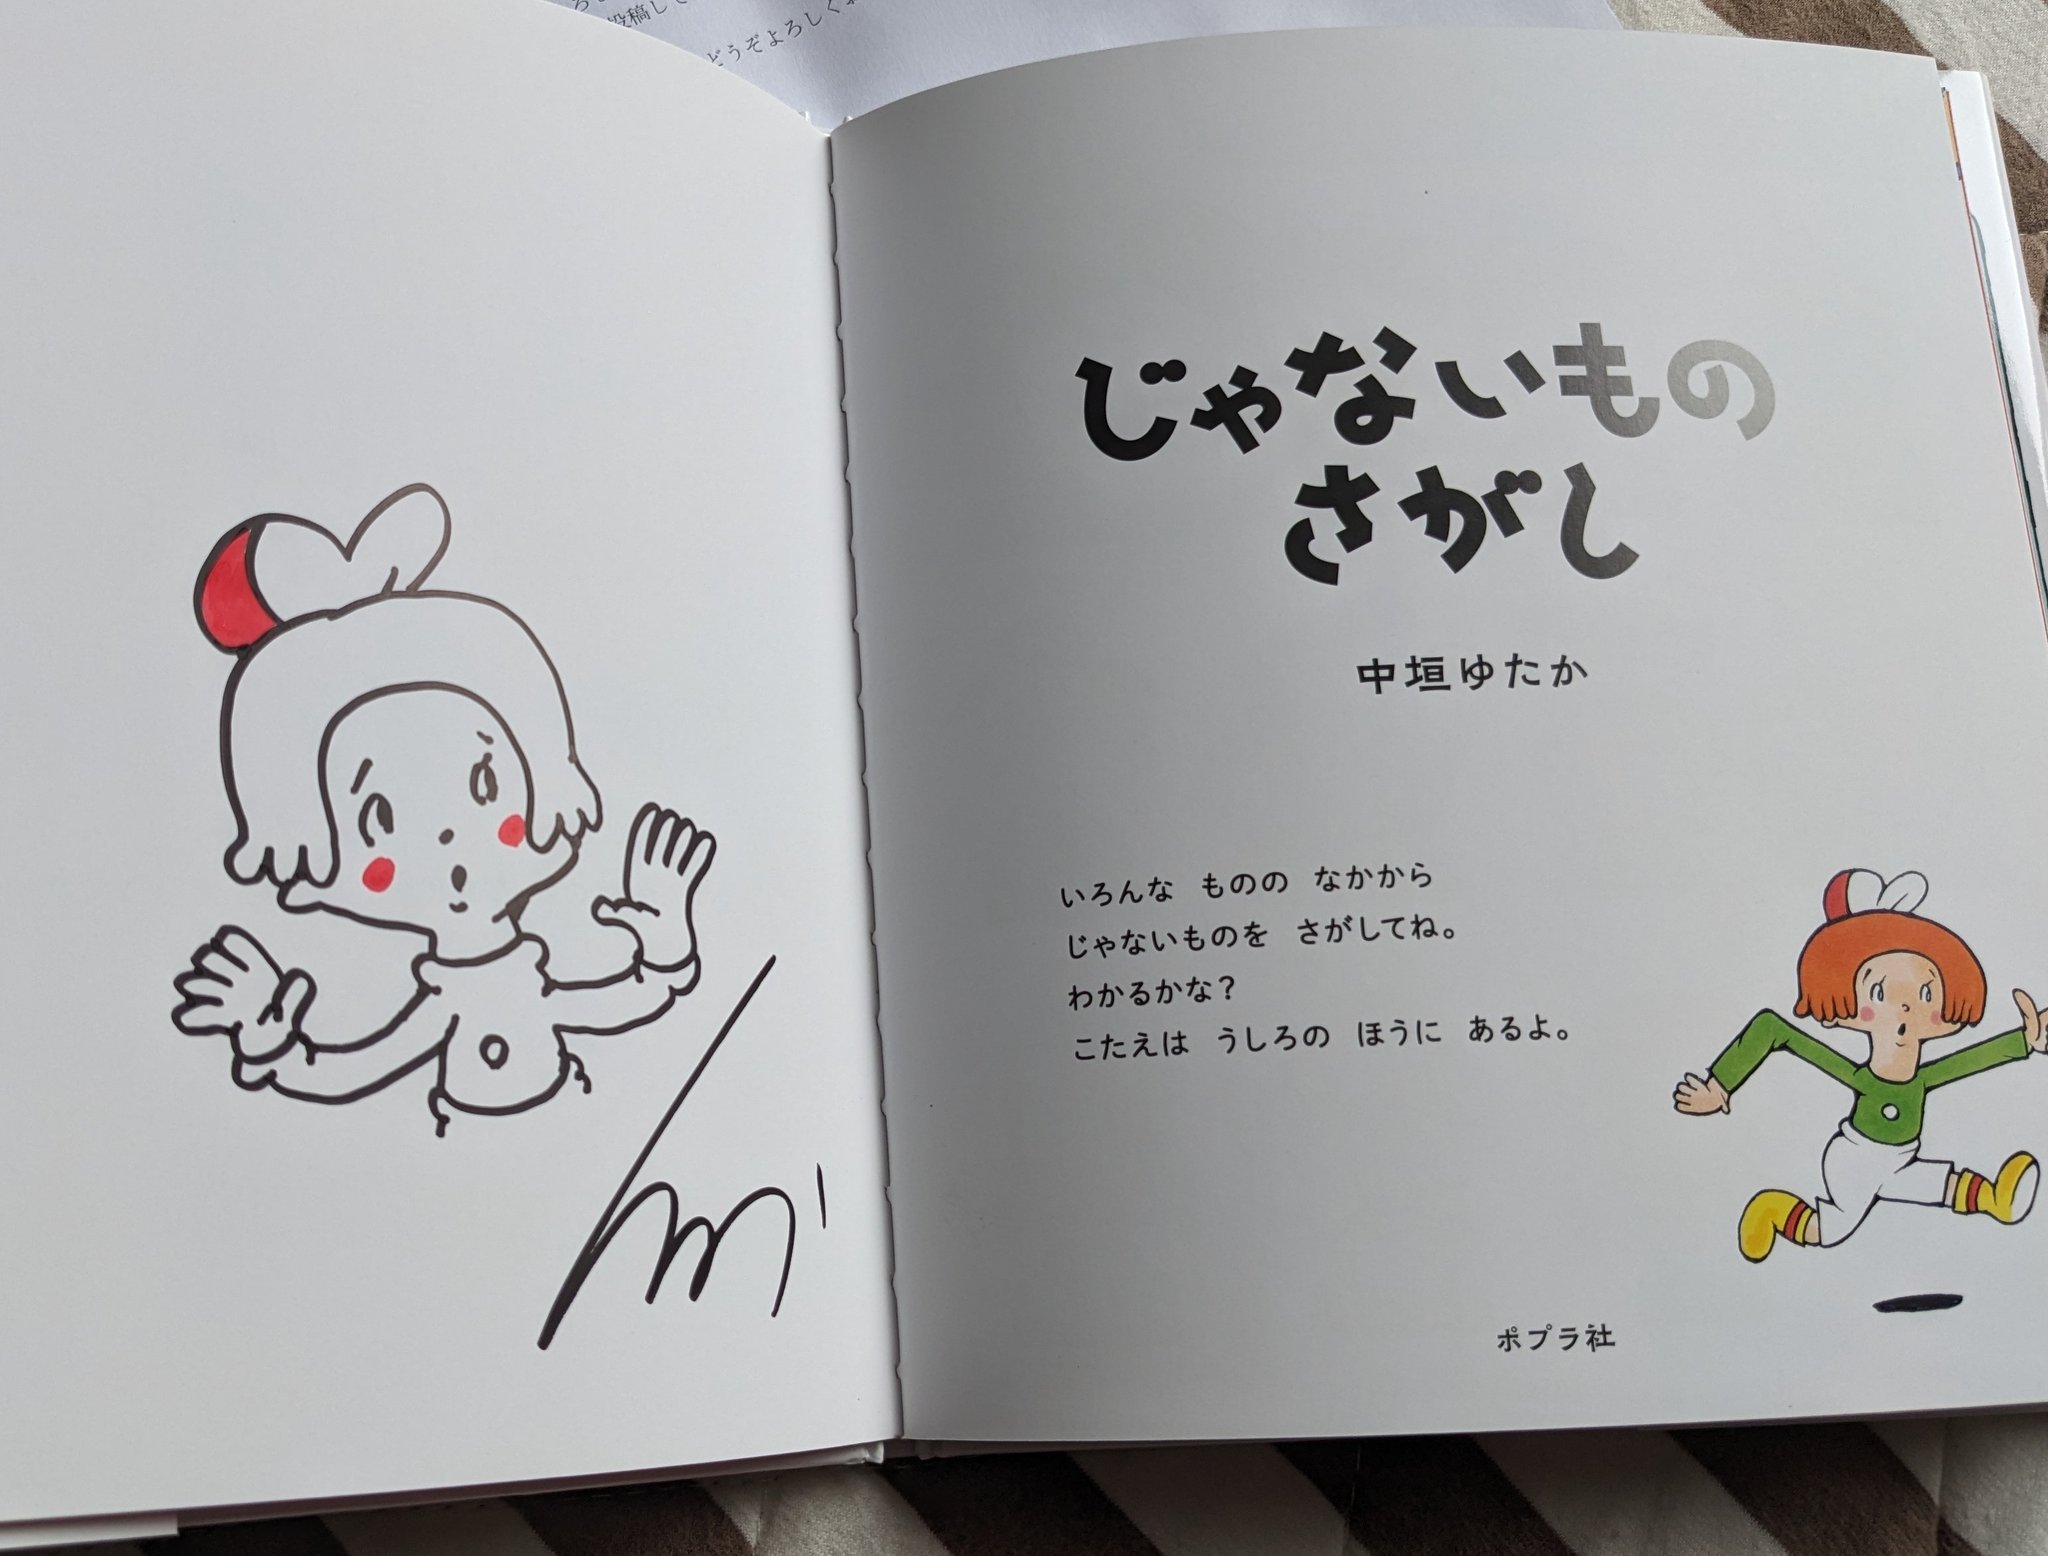 投稿して
どうぞよろしく
じゃないもの
さがし
中垣ゆたか
いろんな ものの なかから
じゃないものを さがしてね。
わかるかな？
こたえは うしろの ほうに あるよ。
ポプラ社